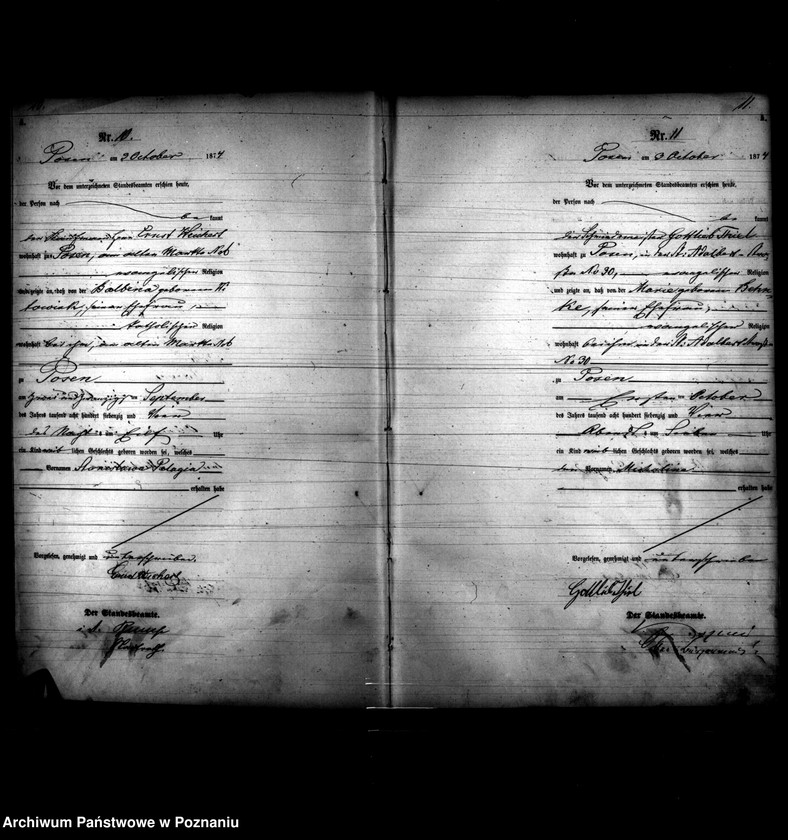 A.
Nr. 10.
Posen am 2 October 1874
Vor dem unterzeichneten Standesbeamten erschien heute,
der Person nach
be kannt
der Kaufmann Herr Ernst Weichert
wohnhaft zu Posen, am alten Markte No 6
evangelischer Religion
und zeigte an, daß von der Balbina geborenen
seiner Ehefrau,
katholischer Religion
wohnhaft bei ihm, am alten Markte No 6
zu Posen
am zwei und zwanzigsten September
des Jahres tausend acht hundert siebenzig und Vier
des Nachts um Elf Uhr
ein Kind weib lichen Geschlechts geboren worden sei, welches
Vornamen Pelagia
erhalten habe
Vorgelesen, genehmigt und unterschrieben.
Ernst Weichert
Der Standesbeamte.
11.
B.
Nr. 11
Posen am 3 October 1874
Vor dem unterzeichneten Standesbeamten erschien heute,
der Person nach
be kannt
der Schmiedemeister Gottlieb
wohnhaft zu Posen, in der St. Adalbert-Stra-
ßen No 30, evangelischer Religion
und zeigte an, daß von der Marie geborenen Behn-
ke, seiner Ehefrau,
evangelischer Religion
wohnhaft bei ihm in der St. Adalbertstraßen
No 30
zu Posen
am Ersten October
des Jahres tausend acht hundert siebenzig und Vier
Abends um Sieben Uhr
ein Kind weib lichen Geschlechts geboren worden sei, welches
den Vornamen Michalina
erhalten habe
Vorgelesen, genehmigt und unterschrieben
Gottlieb
Der Standesbeamte.
Archiwum Państwowe w Poznaniu